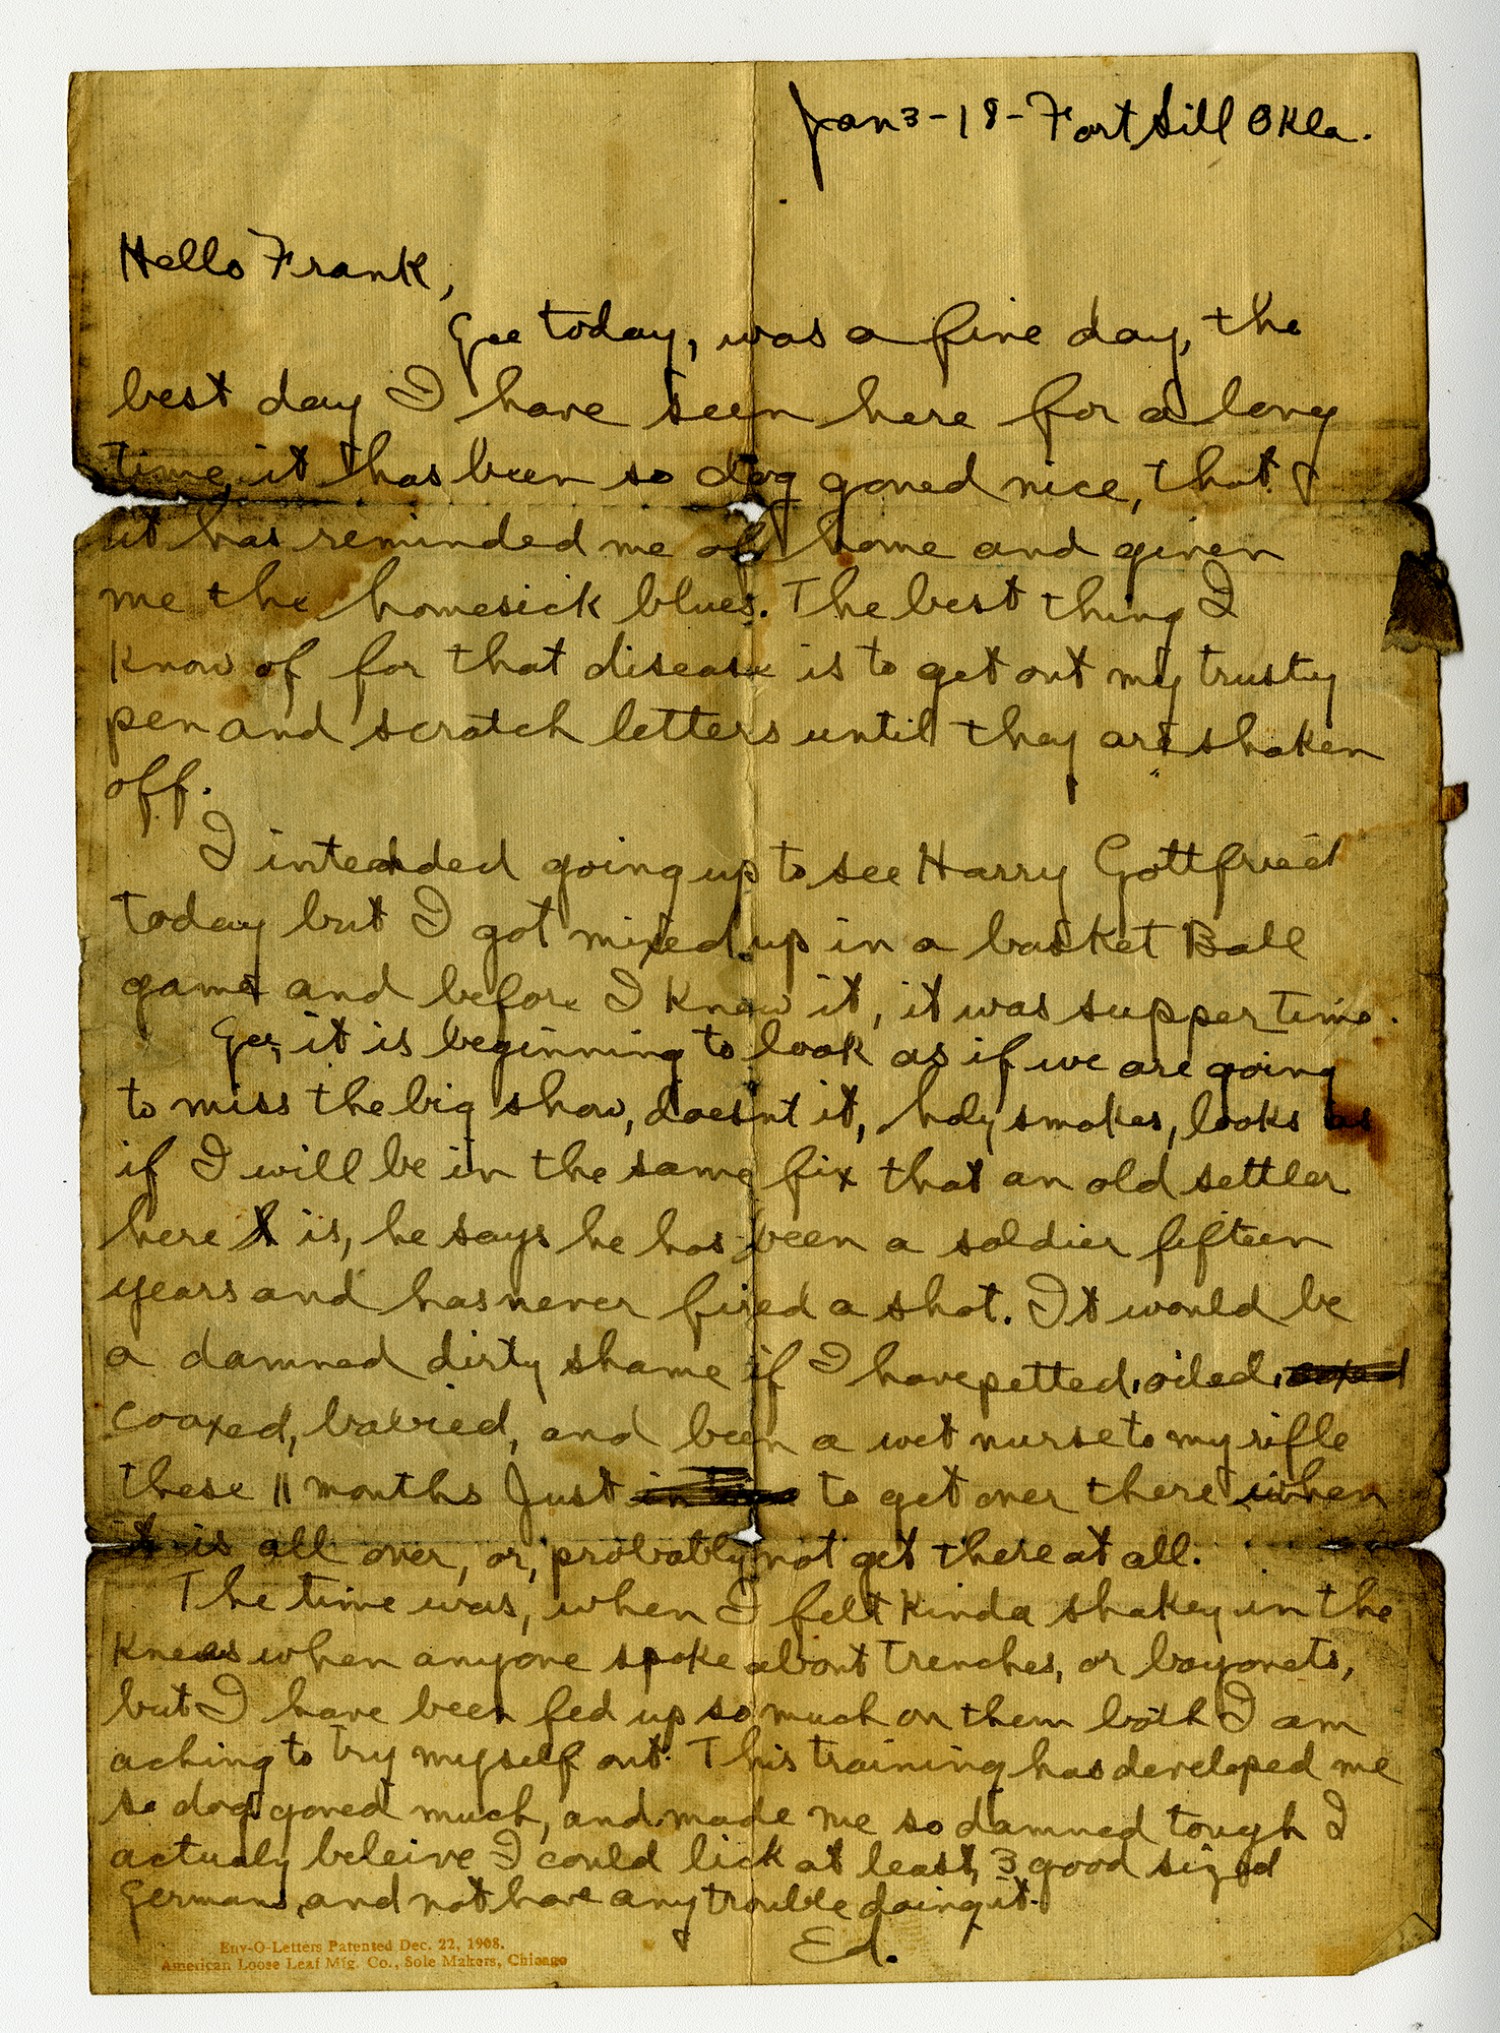 Jan 3-18-Fort Sill Okla.
Hello Frank,
Gee today, was a fine day, the
best day I have seen here for a long
time, it has been so dog goned nice, that
it has reminded me of home and given
me the homesick blues. The best thing I
know of for that disease is to get out my trusty
pen and scratch letters until they are shaken
off.
I intended going up to see Harry Gottfried
today but I got mixed up in a basket Ball
game and before I knew it, it was supper time.
Gee, it is beginning to look as if we are going
to miss the big show, doesnt it, holy smokes, looks as
if I will be in the same fix that an old settler
here is, he says he has been a soldier fifteen
years and has never fired a shot. It would be
a damned dirty shame if I have petted, oiled,
coaxed, babied, and been a wet nurse to my rifle
these 11 months Just to get over there when
it is all over, or, probably not get there at all.
The time was, when I felt kinda shakey in the
knees when anyone spoke about trenches, or bayonets,
but I have been fed up so much on them both I am
aching to try myself out. This training has developed me
so dog goned much, and made me so damned tough I
actualy beleive I could lick at least, 3 good sized
Germans, and not have any trouble doing it.
Ed.
Env-O-Letters Patented Dec. 22, 1908.
American Loose Leaf Mfg. Co., Sole Makers, Chicago